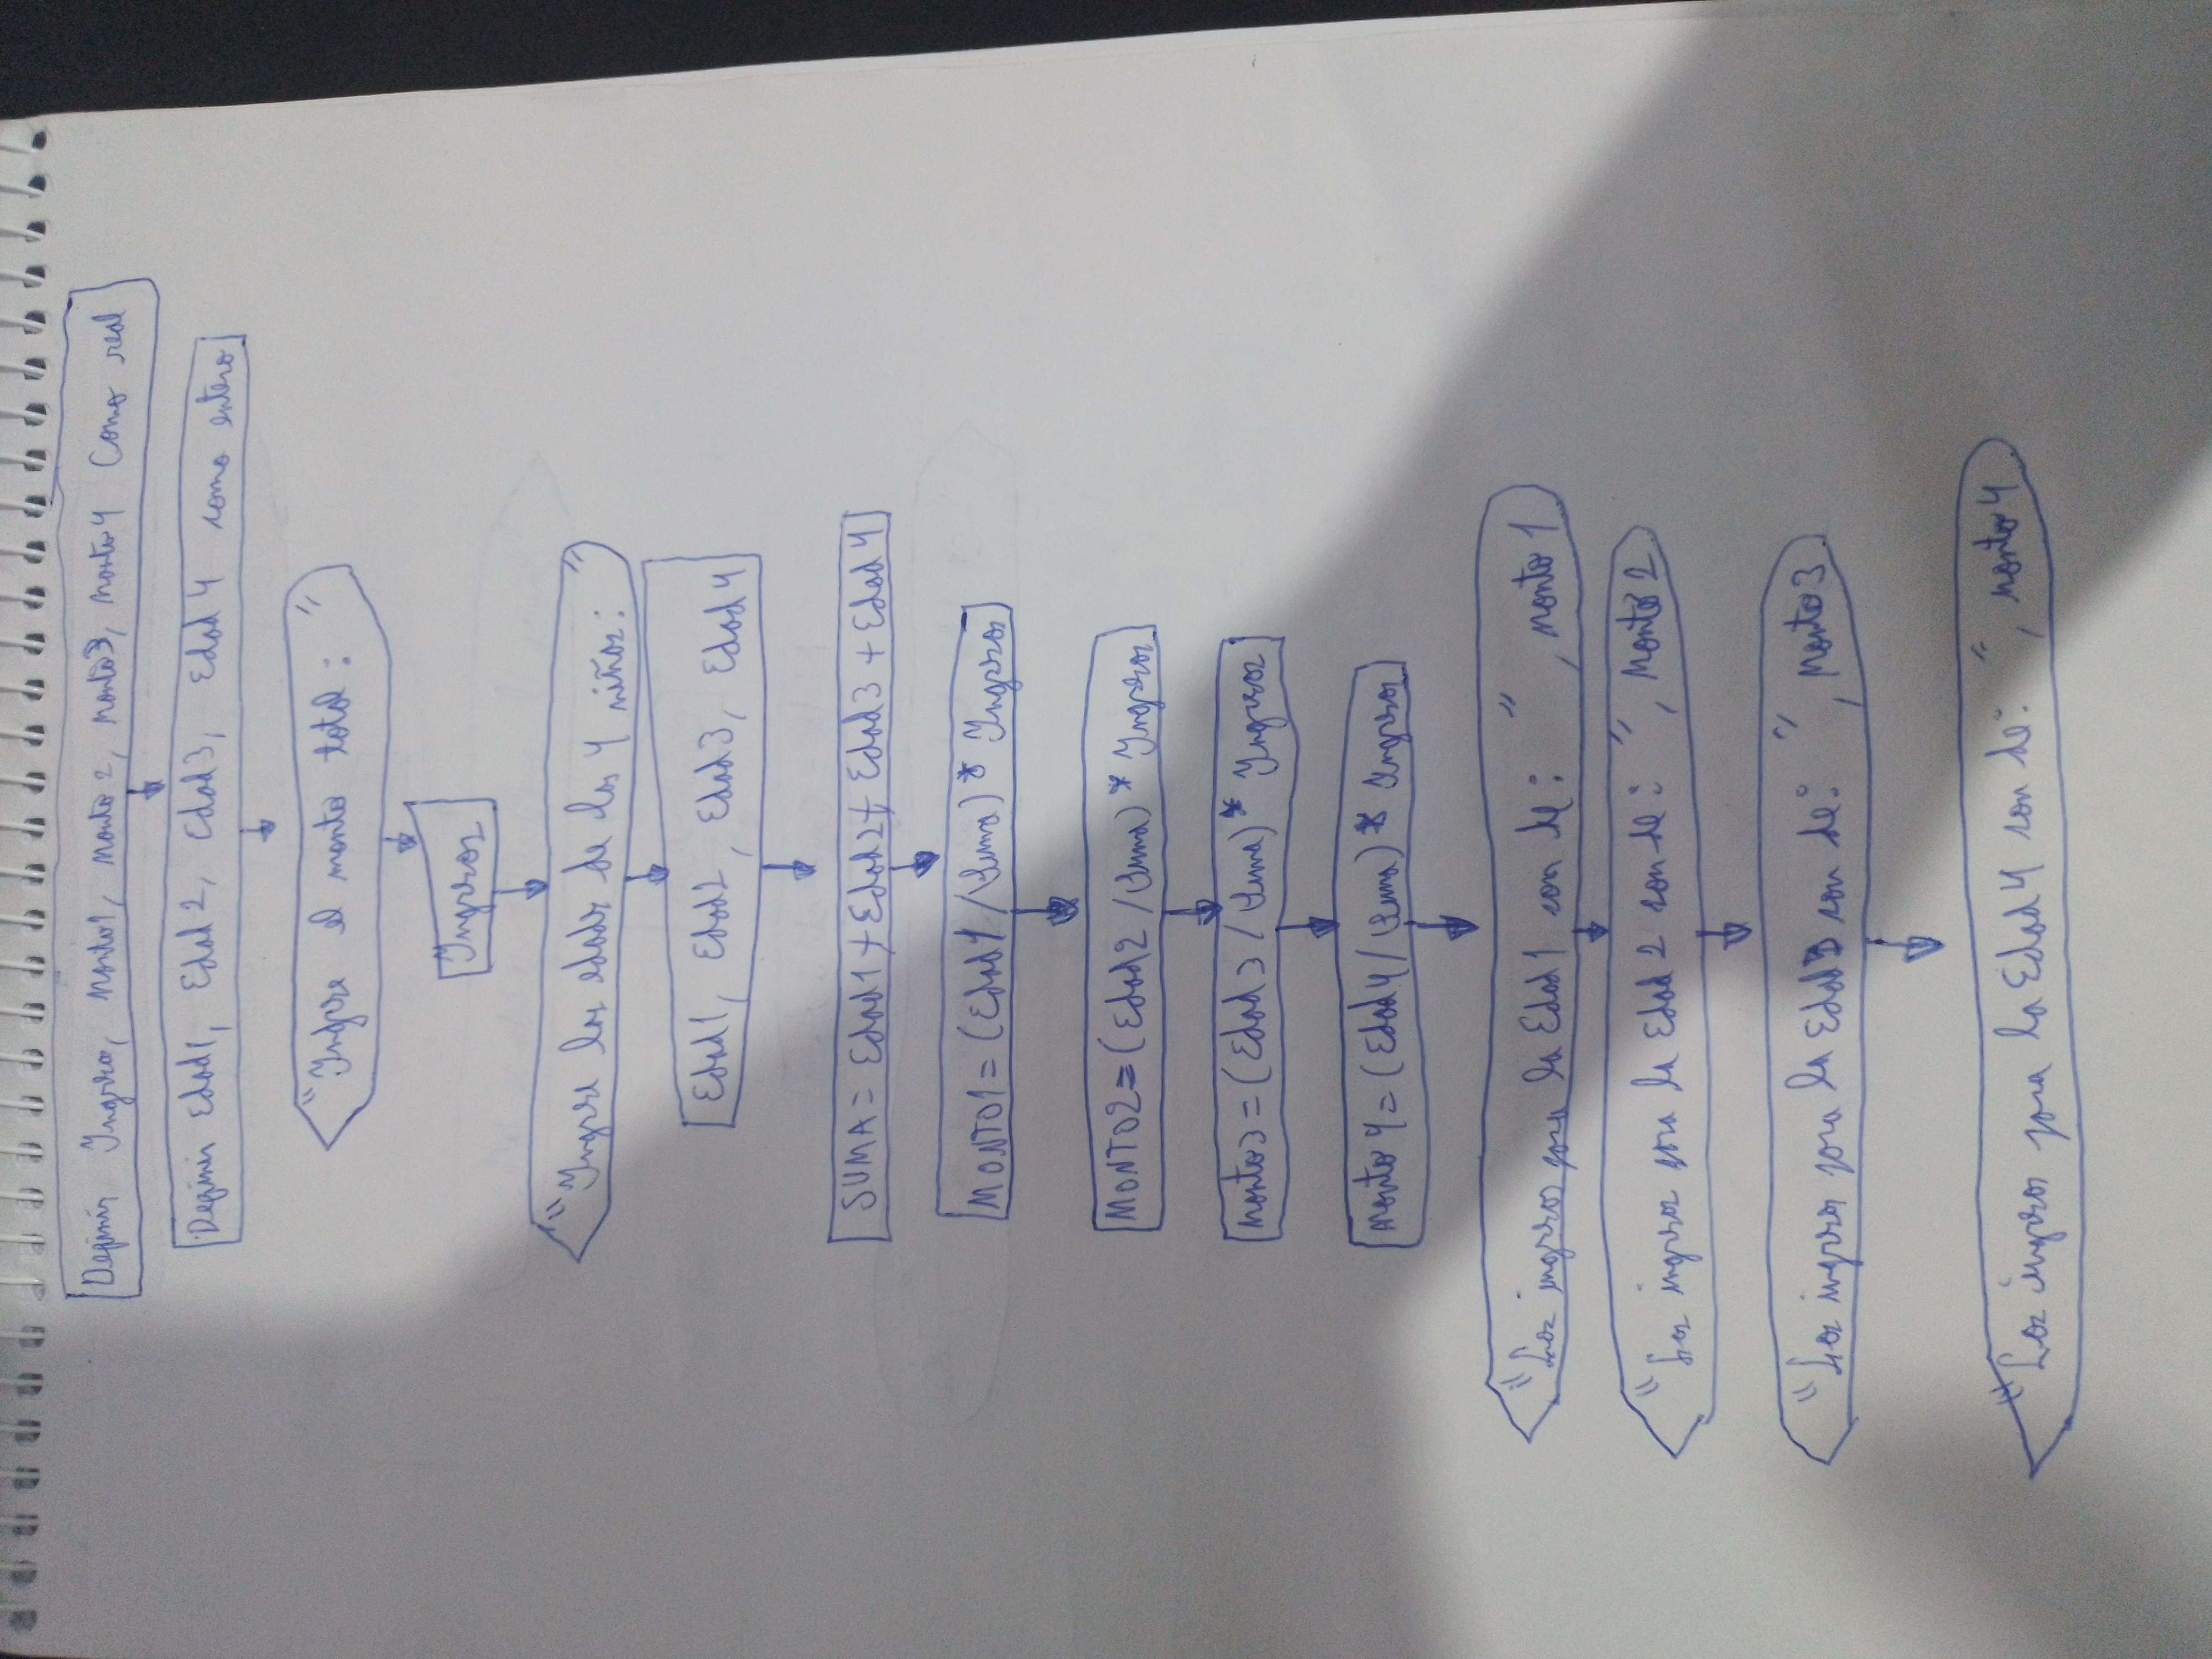 Definir Ingreso, Monto1, Monto2, Monto3, Monto4 Como real
Definir Edad1, Edad2, Edad3, Edad4 como entero
"Ingrese el monto total: "
Ingresos
"Ingrese las edades de los 4 niños: "
Edad1, Edad2, Edad3, Edad4
SUMA = Edad1 + Edad2 + Edad3 + Edad4
MONTO1 = (Edad1 / Suma) * Ingresos
MONTO2 = (Edad2 / Suma) * Ingresos
Monto3 = (Edad3 / Suma) * Ingresos
Monto4 = (Edad4 / Suma) * Ingresos
"Los ingresos para la Edad1 son de: ", Monto1
"Los ingresos para la Edad2 son de: ", Monto2
"Los ingresos para la Edad3 son de: ", Monto3
"Los ingresos para la Edad4 son de: ", Monto4